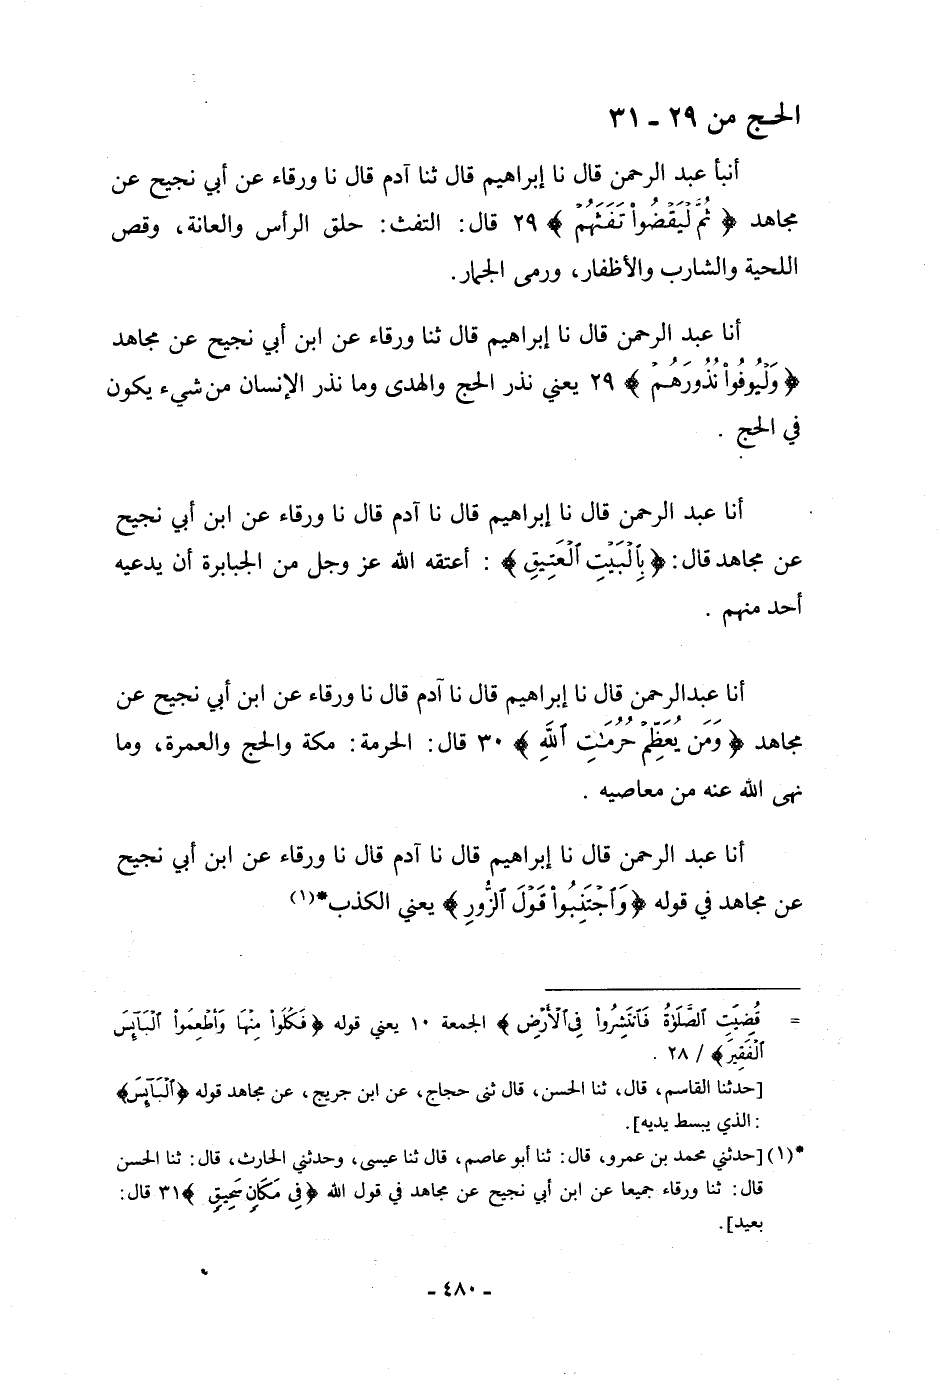 الحج من ٢٩ - ٣١
أنبأ عبد الرحمن قال نا إبراهيم قال ثنا آدم قال نا ورقاء عن أبي نجيح عن
مجاهد ﴿ ثُمَّ لْيَقْضُوا۟ تَفَثَهُمْ ﴾ ٢٩ قال: التفث: حلق الرأس والعانة، وقص
اللحية والشارب والأظفار، ورمى الجمار.
أنا عبد الرحمن قال نا إبراهيم قال ثنا ورقاء عن ابن أبي نجيح عن مجاهد
﴿ وَلْيُوفُوا۟ نُذُورَهُمْ ﴾ ٢٩ يعني نذر الحج والهدى وما نذر الإنسان من شيء يكون
في الحج .
أنا عبد الرحمن قال نا إبراهيم قال نا آدم قال نا ورقاء عن ابن أبي نجيح
عن مجاهد قال: ﴿ بِٱلْبَيْتِ ٱلْعَتِيقِ ﴾ : أعتقه الله عز وجل من الجبابرة أن يدعيه
أحد منهم .
أنا عبدالرحمن قال نا إبراهيم قال نا آدم قال نا ورقاء عن ابن أبي نجيح عن
مجاهد ﴿ وَمَن يُعَظِّمْ حُرُمَٰتِ ٱللَّهِ ﴾ ٣٠ قال: الحرمة: مكة والحج والعمرة، وما
نهى الله عنه من معاصيه .
أنا عبد الرحمن قال نا إبراهيم قال نا آدم قال نا ورقاء عن ابن أبي نجيح
عن مجاهد في قوله ﴿ وَٱجْتَنِبُوا۟ قَوْلَ ٱلزُّورِ ﴾ يعني الكذب*(١)
= قُضِيَتِ ٱلصَّلَوٰةُ فَٱنتَشِرُوا۟ فِي ٱلْأَرْضِ ﴾ الجمعة ١٠ يعني قوله ﴿ فَكُلُوا۟ مِنْهَا وَأَطْعِمُوا۟ ٱلْبَآئِسَ
ٱلْفَقِيرَ ﴾ / ٢٨ .
[حدثنا القاسم، قال، ثنا الحسن، قال ثنى حجاج، عن ابن جريج، عن مجاهد قوله ﴿ٱلْبَآئِسَ﴾
: الذي يبسط يديه].
*(١) [حدثني محمد بن عمرو، قال: ثنا أبو عاصم، قال ثنا عيسى، وحدثني الحارث، قال: ثنا الحسن
قال: ثنا ورقاء جميعا عن ابن أبي نجيح عن مجاهد في قول الله ﴿ فِى مَكَانٍ سَحِيقٍ ﴾ ٣١ قال:
بعيد].
- ٤٨٠ -